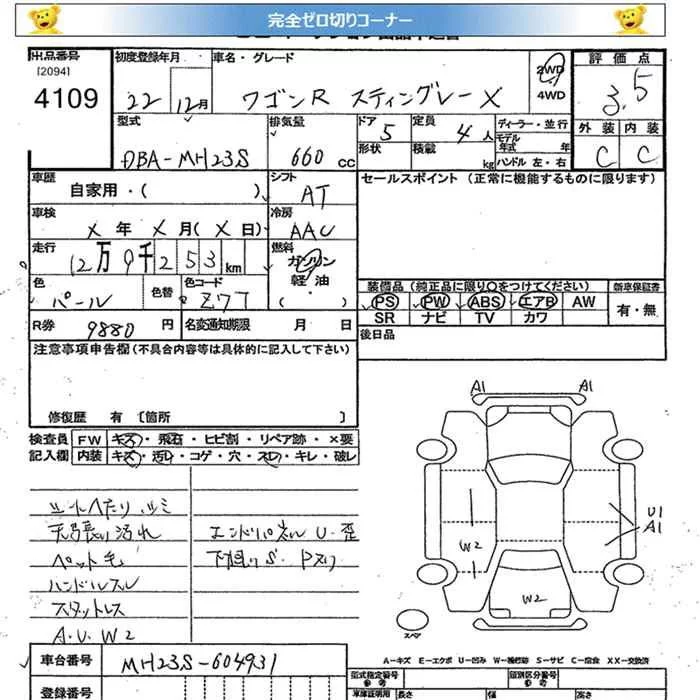 完全ゼロ切りコーナー
出品番号 初度登録年月 車名・グレード 2WD 評価点
[2094]
4109 22 12月 ワゴンR スティングレー X 4WD 3.5
型式 排気量 ドア 5 定員 4人 ディーラー・並行 外装 内装
DBA-MH23S 660 CC 形状 積載 kg モデル年式 年 C C
ハンドル 左・右
車歴 自家用・( ) シフト AT セールスポイント (正常に機能するものに限ります)
車検 X年 X月(X日) 冷房 AAC
走行 12万9千253km 燃料 ガソリン 軽油 ( )
色 パール 色替 色コード Z7T
装備品(純正品に限り○をつけてください) 新車保証書
PS PW ABS エアB AW 有・無
SR ナビ TV カワ
R券 9880円 名変通知期限 月 日 後日品
注意事項申告欄(不具合内容等は具体的に記入して下さい)
修復歴 有〔箇所 〕
検査員 FW キズ・飛石・ヒビ割・リペア跡・×要
記入欄 内装 キズ・汚レ・コゲ・穴・スレ・キレ・破レ
A1 A1
シートヘたり シミ
天張り汚れ エンドパネルU・歪
ペット毛 下廻りS・Pヌケ
ハンドルスレ
スタットレス
A.U.W2
U1
A1
W2
W2
スペア
車台番号 MH23S-604931
A-キズ E-エクボ U-凹み W-補修跡 S-サビ C-腐食 XX-交換済
登録番号
型式指定番号 類別区分番号
車庫証明用 長さ 幅 高さ